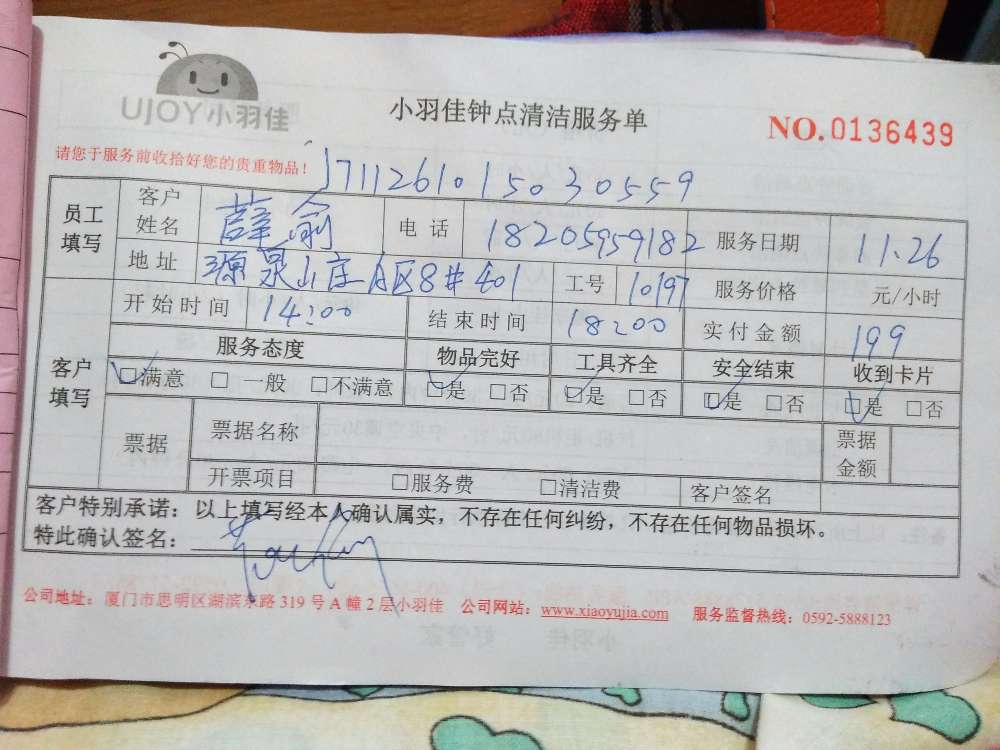 UJOY小羽佳
小羽佳钟点清洁服务单
NO.0136439
请您于服务前收拾好您的贵重物品！
171126101503 0559
员工填写 客户姓名 薛俞 电话 18205959182 服务日期 11.26
地址 源泉山庄A区8#401 工号 10197 服务价格 元/小时
客户填写 开始时间 14:00 结束时间 18:00 实付金额 199
服务态度 物品完好 工具齐全 安全结束 收到卡片
☑满意 □一般 □不满意 ☑是 □否 ☑是 □否 ☑是 □否 ☑是 □否
票据 票据名称 票据金额
开票项目 □服务费 □清洁费 客户签名
客户特别承诺：以上填写经本人确认属实，不存在任何纠纷，不存在任何物品损坏。
特此确认签名：
公司地址：厦门市思明区湖滨东路319号A幢2层小羽佳 公司网站：www.xiaoyujia.com 服务监督热线：0592-5888123